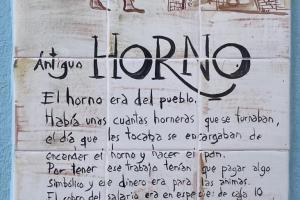 Antiguo HORNO
El horno era del pueblo.
Había unas cuantas horneras que se turnaban,
el día que les tocaba se encargaban de
encender el horno y hacer el pan.
Por tener ese trabajo tenían que pagar algo
simbólico y ese dinero era para las ánimas.
El cobro del salario era en especies: de cada 10